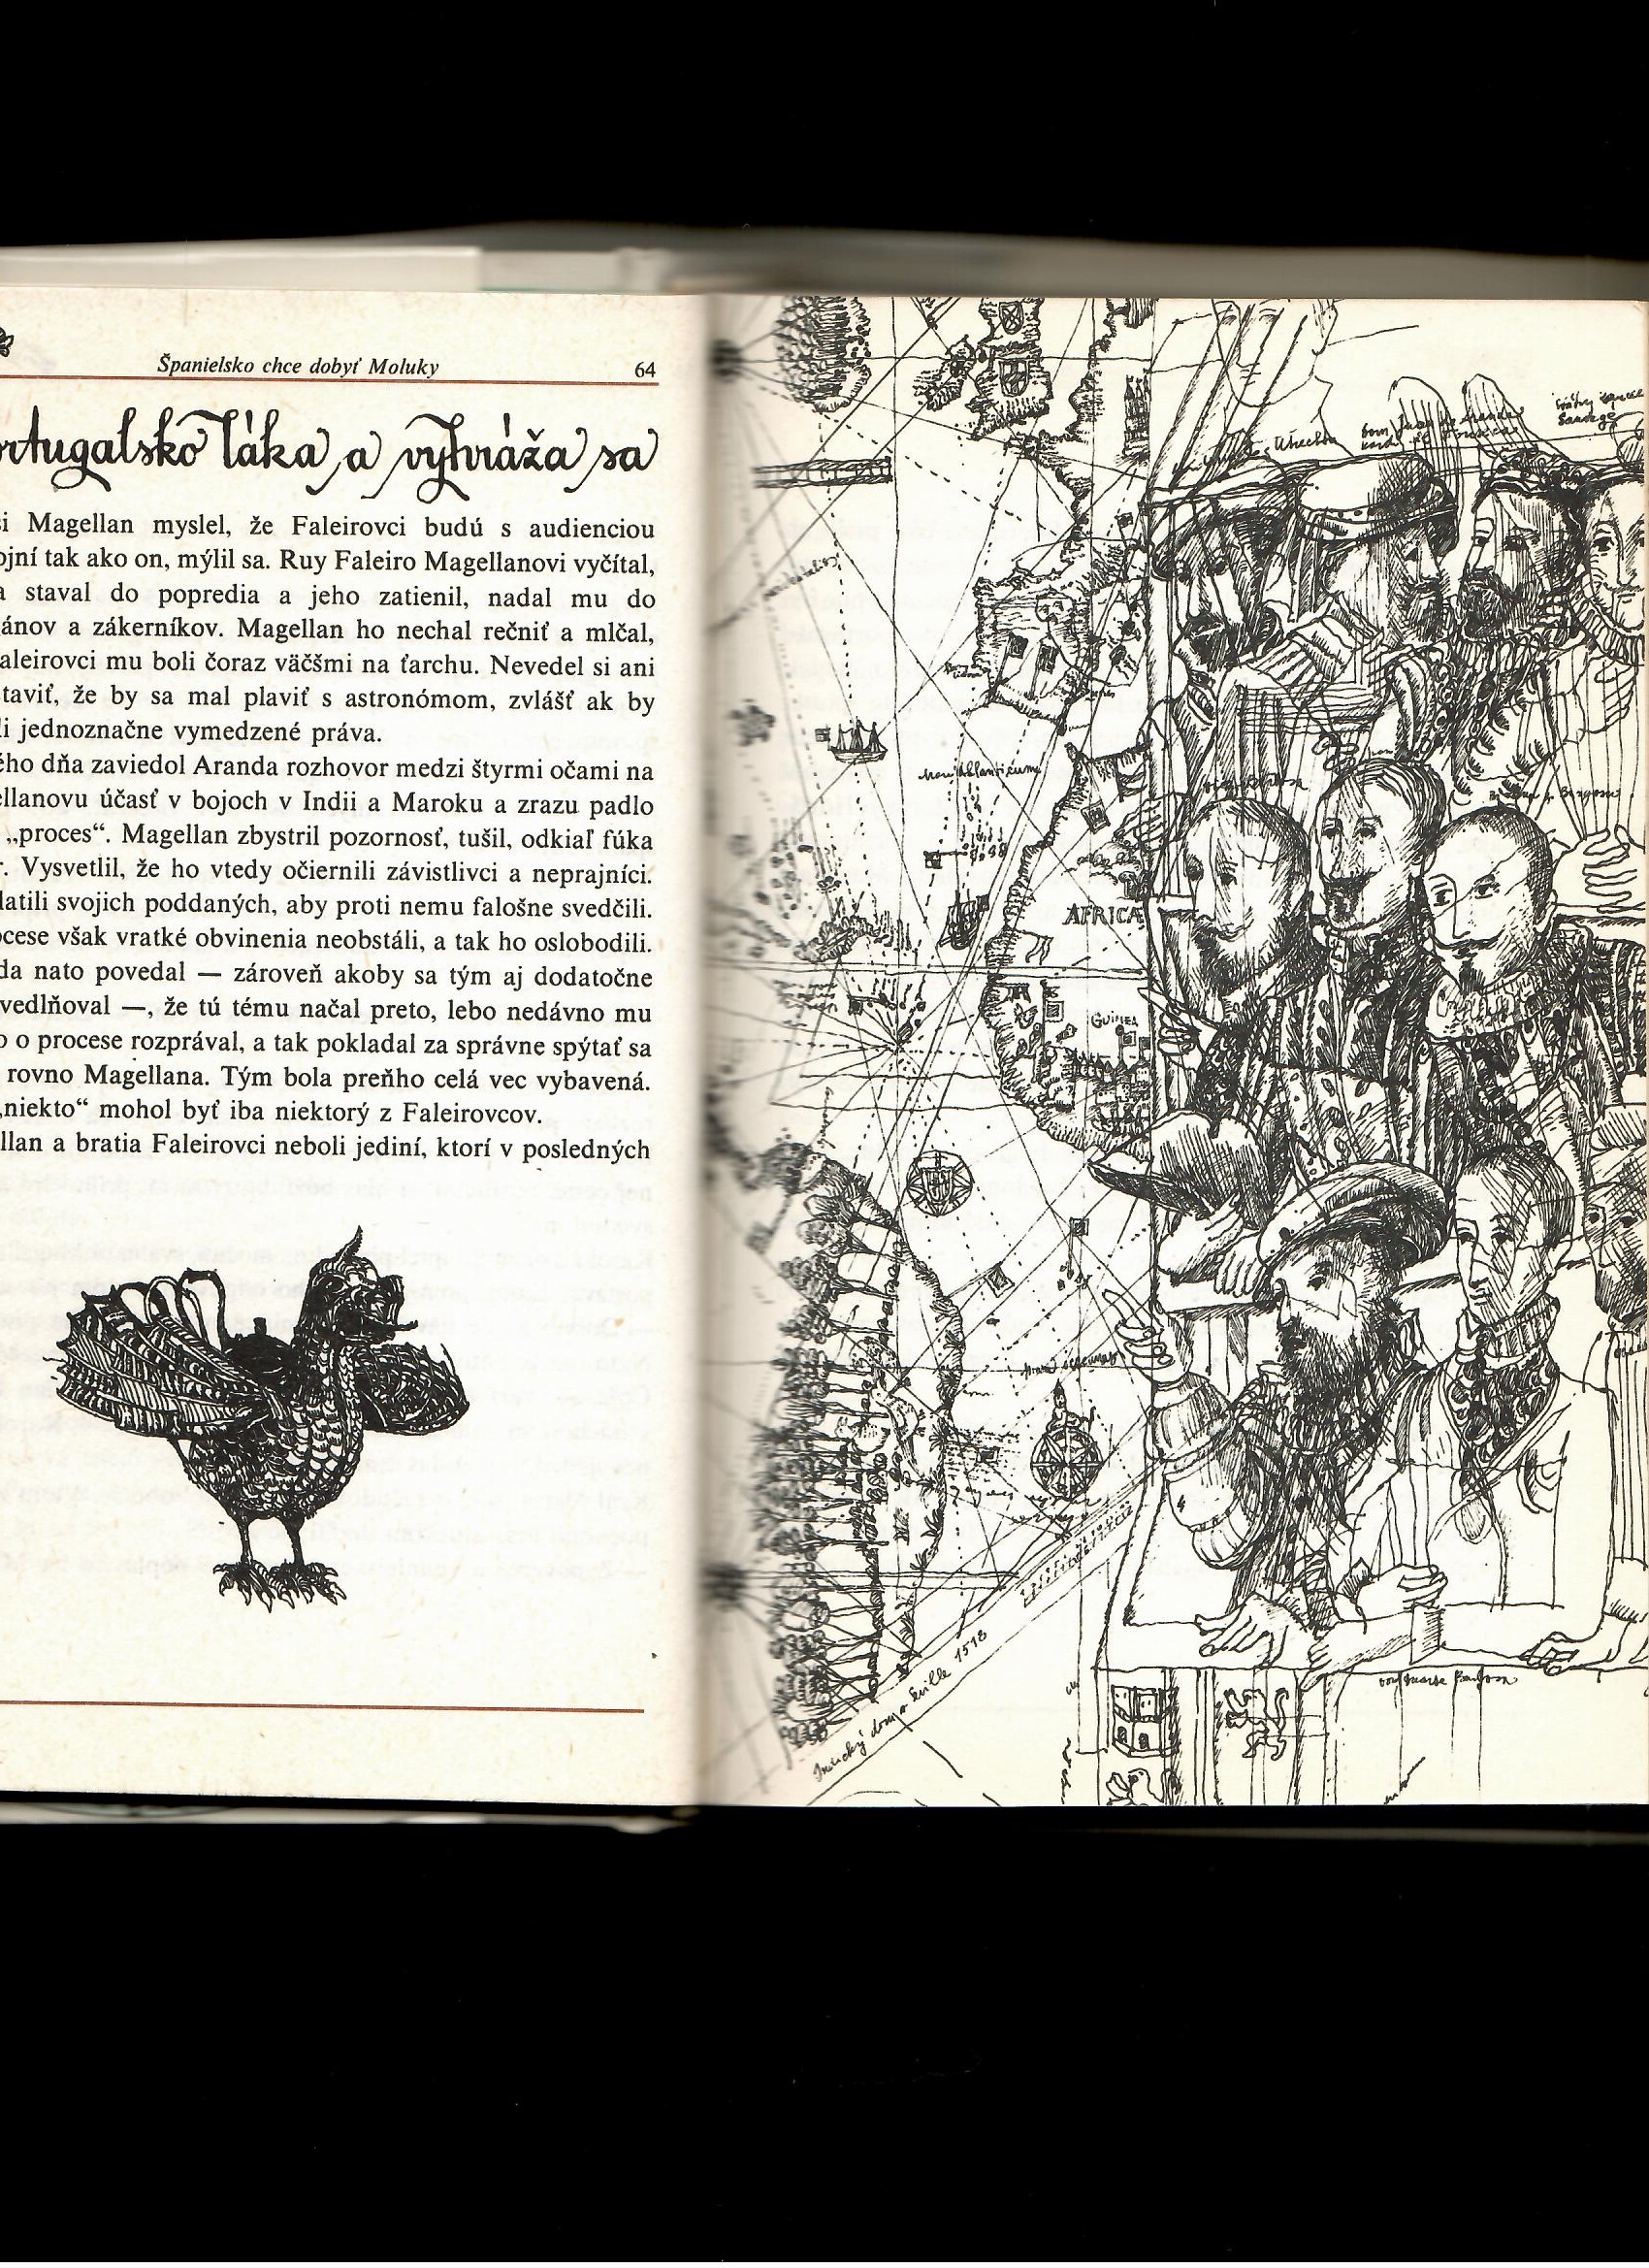 Španielsko chce dobyť Moluky 64
rtugalsko láka a vyhráža sa
si Magellan myslel, že Faleirovci budú s audienciou
ojní tak ako on, mýlil sa. Ruy Faleiro Magellanovi vyčítal,
a staval do popredia a jeho zatienil, nadal mu do
ánov a zákerníkov. Magellan ho nechal rečniť a mlčal,
aleirovci mu boli čoraz väčšmi na ťarchu. Nevedel si ani
taviť, že by sa mal plaviť s astronómom, zvlášť ak by
li jednoznačne vymedzené práva.
ého dňa zaviedol Aranda rozhovor medzi štyrmi očami na
ellanovu účasť v bojoch v Indii a Maroku a zrazu padlo
„proces“. Magellan zbystril pozornosť, tušil, odkiaľ fúka
r. Vysvetlil, že ho vtedy očiernili závistlivci a neprajníci.
latili svojich poddaných, aby proti nemu falošne svedčili.
ocese však vratké obvinenia neobstáli, a tak ho oslobodili.
da nato povedal — zároveň akoby sa tým aj dodatočne
vedlňoval —, že tú tému načal preto, lebo nedávno mu
o o procese rozprával, a tak pokladal za správne spýtať sa
rovno Magellana. Tým bola preňho celá vec vybavená.
„niekto“ mohol byť iba niektorý z Faleirovcov.
llan a bratia Faleirovci neboli jediní, ktorí v posledných
AFRICA
GUINEA
Indický dom v Seville 1518